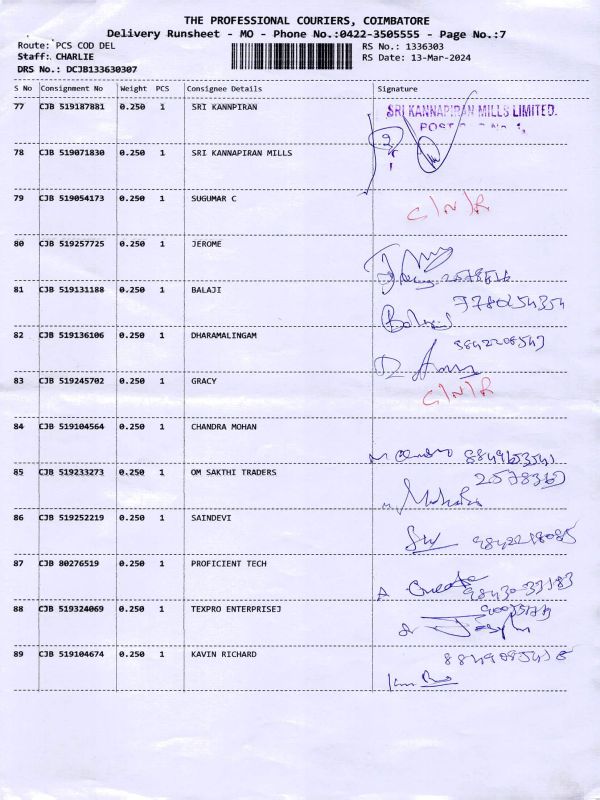 THE PROFESSIONAL COURIERS, COIMBATORE
Delivery Runsheet - MO - Phone No.:0422-3505555 - Page No.:7
Route: PCS COD DEL RS No.: 1336303
Staff: CHARLIE RS Date: 13-Mar-2024
DRS No.: DCJB133630307
S No Consignment No Weight PCS Consignee Details Signature
77 CJB 519187881 0.250 1 SRI KANNPIRAN
SRI KANNAPIRAN MILLS LIMITED.
78 CJB 519071830 0.250 1 SRI KANNAPIRAN MILLS
79 CJB 519054173 0.250 1 SUGUMAR C C/N/R
80 CJB 519257725 0.250 1 JEROME
81 CJB 519131188 0.250 1 BALAJI
82 CJB 519136106 0.250 1 DHARAMALINGAM
83 CJB 519245702 0.250 1 GRACY C/N/R
84 CJB 519104564 0.250 1 CHANDRA MOHAN
85 CJB 519233273 0.250 1 OM SAKTHI TRADERS
86 CJB 519252219 0.250 1 SAINDEVI
87 CJB 80276519 0.250 1 PROFICIENT TECH
88 CJB 519324069 0.250 1 TEXPRO ENTERPRISEJ
89 CJB 519104674 0.250 1 KAVIN RICHARD